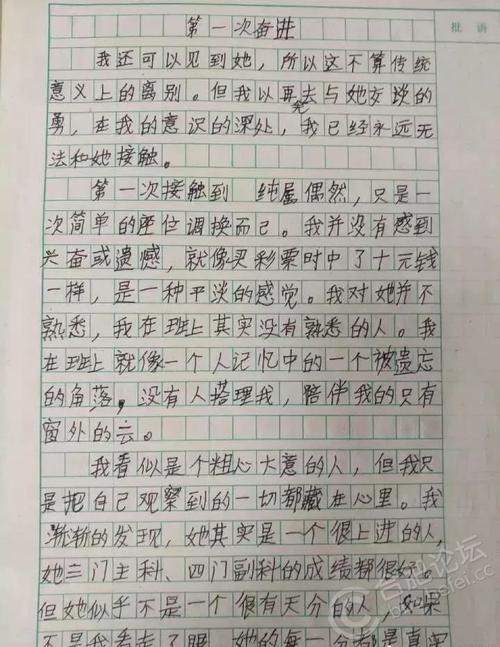 第一次奋进
批语
我还可以见到她，所以这不算传统
意义上的离别。但我以再丧去与她交谈的
勇，在我的意识的深处，我已经永远无
法和她接触。
第一次接触到 纯属偶然，只是一
次简单的座位调换而已。我并没有感到
兴奋或遗憾，就像买彩票时中了十元钱
一样，是一种平淡的感觉。我对她并不
熟悉，我在班上其实没有熟悉的人。我
在班上就像一个人记忆中的一个被遗忘
的角落，没有人搭理我，陪伴我的只有
窗外的云。
我看似是个粗心大意的人，但我只
是把自己观察到的一切都藏在心里。我
渐渐的发现，她其实是一个很上进的人，
她三门主科、四门副科的成绩都很好。
但她似乎不是一个很有天分的人，如果
不是我看走了眼，她的每一分都是真实
合肥论坛